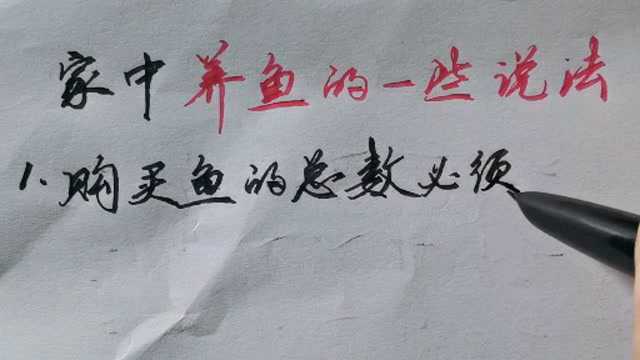 家中养鱼的一些说法
1.购买鱼的总数必须